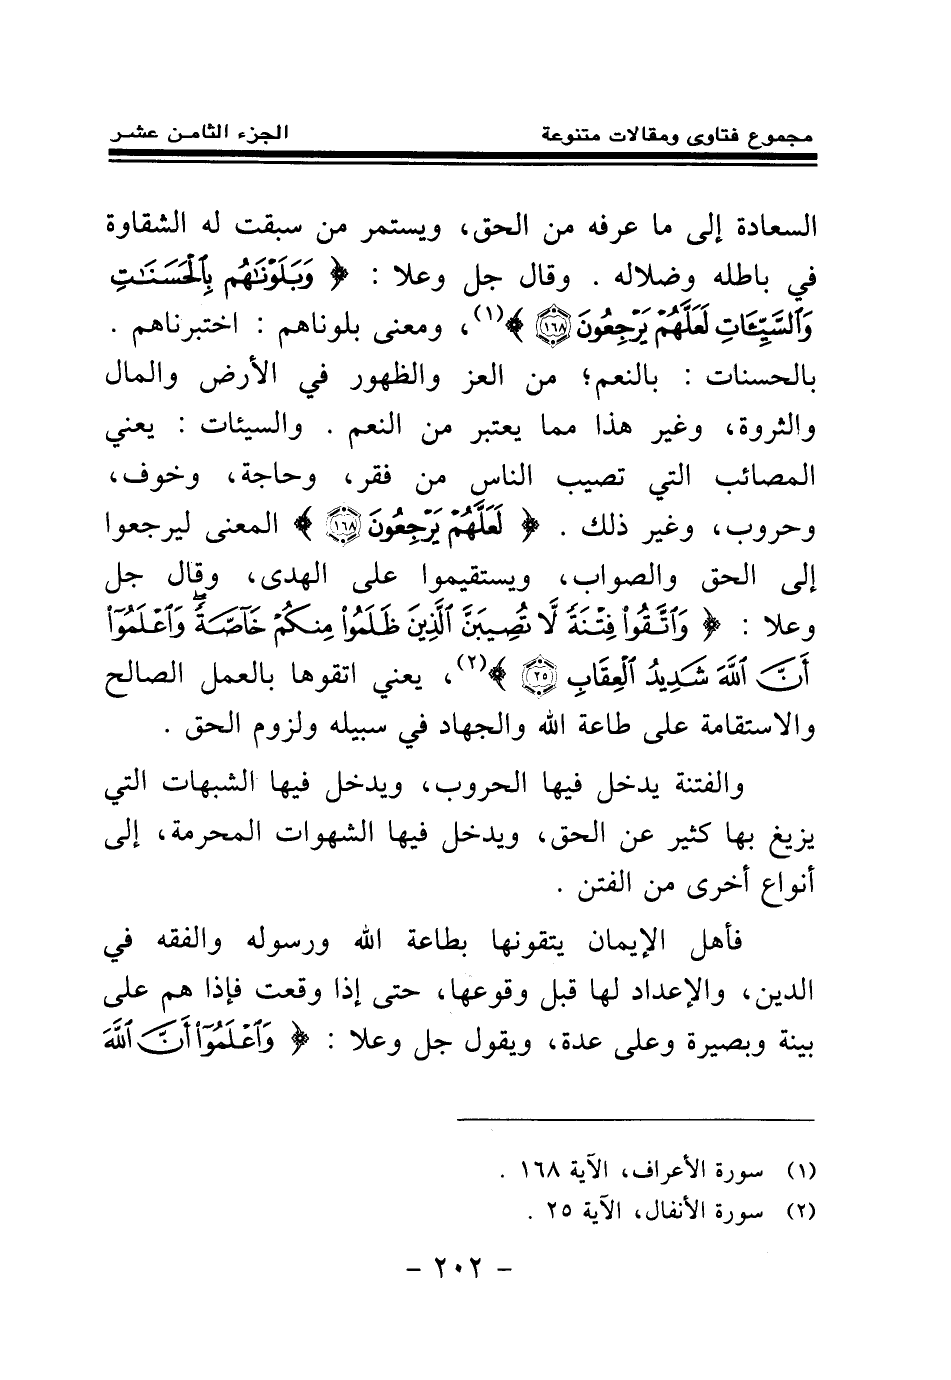 مجموع فتاوى ومقالات متنوعة الجزء الثامن عشر
السعادة إلى ما عرفه من الحق، ويستمر من سبقت له الشقاوة
في باطله وضلاله . وقال جل وعلا : ﴿ وَبَلَوْنَٰهُم بِٱلْحَسَنَٰتِ
وَٱلسَّيِّـَٔاتِ لَعَلَّهُمْ يَرْجِعُونَ ١٦٨ ﴾(١)، ومعنى بلوناهم : اختبرناهم .
بالحسنات : بالنعم؛ من العز والظهور في الأرض والمال
والثروة، وغير هذا مما يعتبر من النعم . والسيئات : يعني
المصائب التي تصيب الناس من فقر، وحاجة، وخوف،
وحروب، وغير ذلك . ﴿ لَعَلَّهُمْ يَرْجِعُونَ ١٦٨ ﴾ المعنى ليرجعوا
إلى الحق والصواب، ويستقيموا على الهدى، وقال جل
وعلا : ﴿ وَٱتَّقُوا۟ فِتْنَةً لَّا تُصِيبَنَّ ٱلَّذِينَ ظَلَمُوا۟ مِنكُمْ خَآصَّةً ۖ وَٱعْلَمُوٓا۟
أَنَّ ٱللَّهَ شَدِيدُ ٱلْعِقَابِ ٢٥ ﴾(٢)، يعني اتقوها بالعمل الصالح
والاستقامة على طاعة الله والجهاد في سبيله ولزوم الحق .
والفتنة يدخل فيها الحروب، ويدخل فيها الشبهات التي
يزيغ بها كثير عن الحق، ويدخل فيها الشهوات المحرمة، إلى
أنواع أخرى من الفتن .
فأهل الإيمان يتقونها بطاعة الله ورسوله والفقه في
الدين، والإعداد لها قبل وقوعها، حتى إذا وقعت فإذا هم على
بينة وبصيرة وعلى عدة، ويقول جل وعلا : ﴿ وَٱعْلَمُوٓا۟ أَنَّ ٱللَّهَ
(١) سورة الأعراف، الآية ١٦٨ .
(٢) سورة الأنفال، الآية ٢٥ .
- ٢٠٢ -